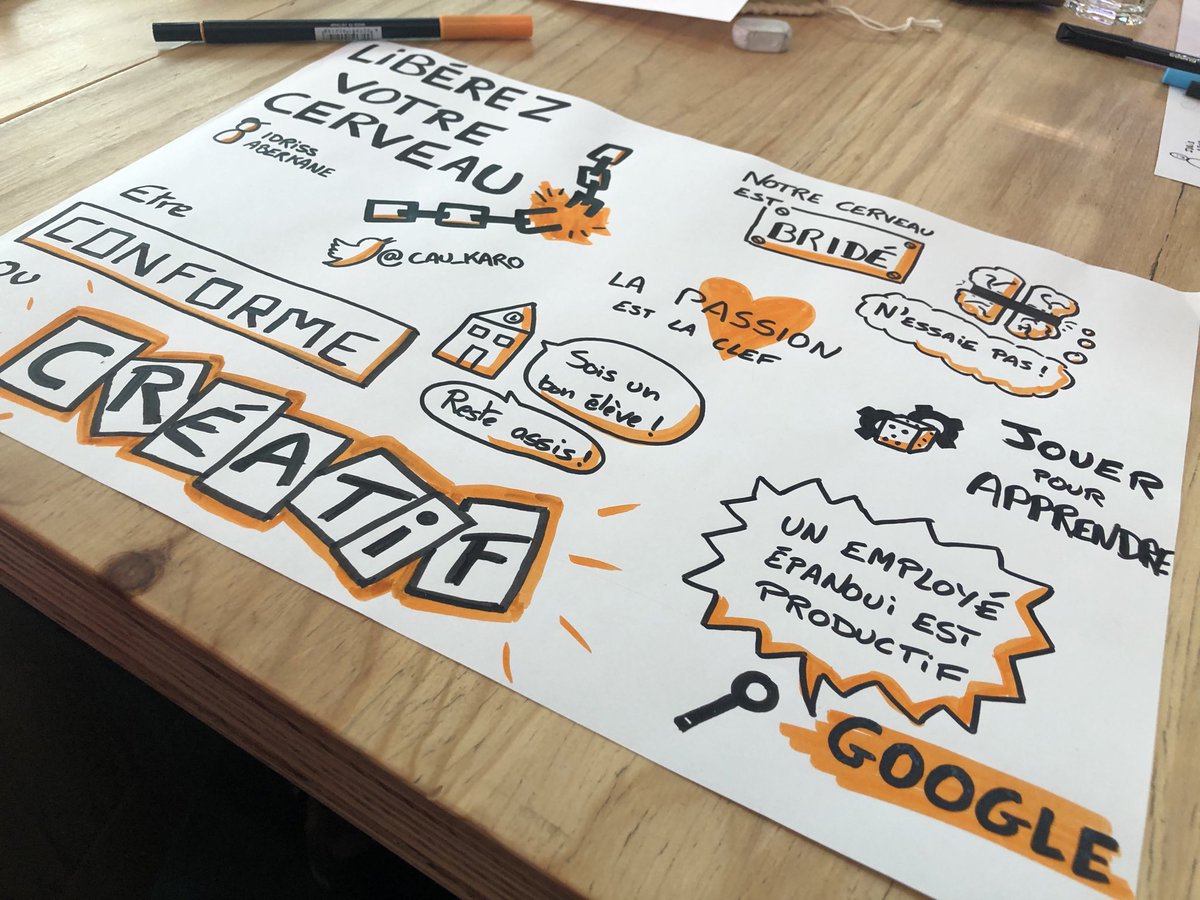 LiBÉREZ
VOTRE
CERVEAU
IDRISS
ABERKANE
@CAU_KARO
Etre
CONFORME
OU
CRÉATiF
Sois un
bon élève!
Reste assis!
NOTRE CERVEAU
EST
BRIDÉ
N'ESSAIE PAS!
LA PASSION
EST LA CLEF
JOUER
POUR
APPRENDRE
UN EMPLOYÉ
ÉPANOUI EST
PRODUCTiF
GOOGLE